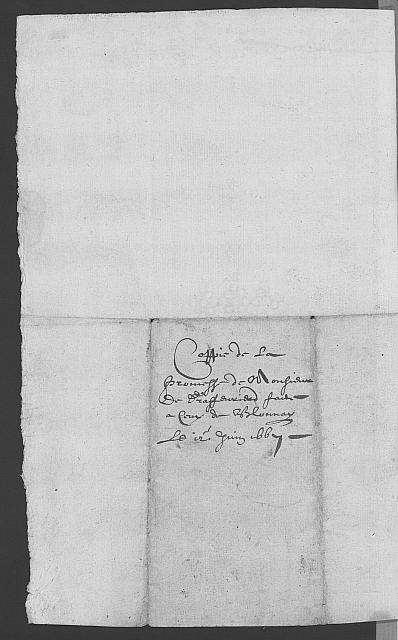 Coppie de La
promesse de Monsieur
De faite
a Ceux de Blonnay
Le 12e Juin 1667